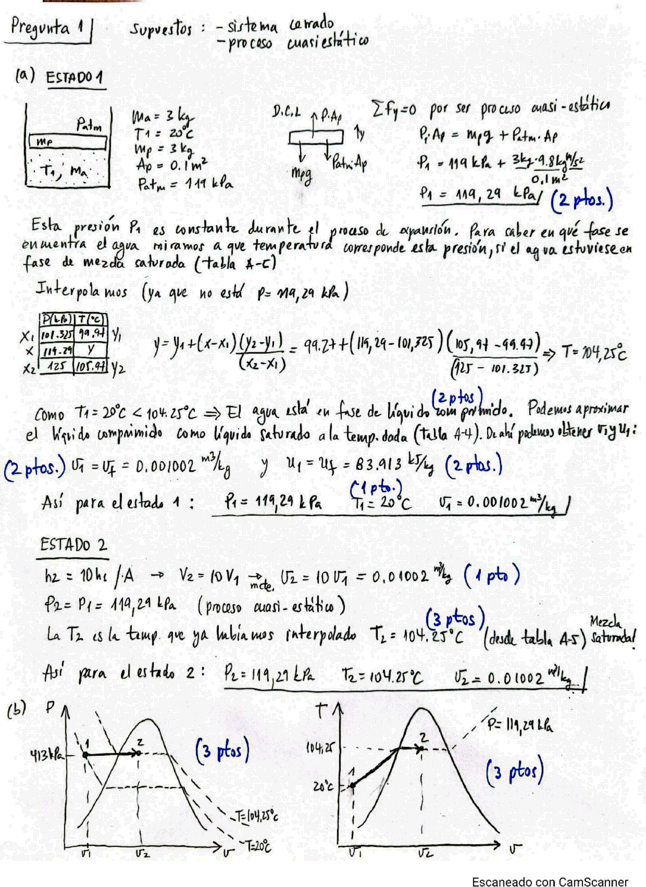 Pregunta 1 Supuestos: - sistema cerrado
- proceso cuasiestático
(a) ESTADO 1
Patm
mp
T1, ma
Ma = 3 kg
T1 = 20°C
Mp = 3 kg
Ap = 0.1 m²
Patm = 119 kPa
D.C.L
P·Ap
y
mpg
Patm·Ap
Σfy=0 por ser proceso cuasi-estático
P1·Ap = mpg + Patm·Ap
P1 = 119 kPa + 3kg·9.8 kg m/s² / 0.1 m²
P1 = 119,29 kPa (2 ptos.)
Esta presión P1 es constante durante el proceso de expansión. Para saber en qué fase se
encuentra el agua miramos a que temperatura corresponde esta presión, si el agua estuviese en
fase de mezcla saturada (tabla A-5)
Interpolamos (ya que no está P = 119,29 kPa)
P(kPa) T(°C)
x1 101.325 99.97 y1
x 119.29 y
x2 125 105.97 y2
y = y1 + (x-x1) (y2-y1)/(x2-x1) = 99.27 + (119,29 - 101,325) (105,97 - 99.97)/(125 - 101.325) ⇒ T = 104,25°C
(2 ptos)
Como T1 = 20°C < 104.25°C ⇒ El agua está en fase de líquido comprimido. Podemos aproximar
el líquido comprimido como líquido saturado a la temp. dada (tabla A-4). De ahí podemos obtener v1 y u1:
(2 ptos.) v1 = vf = 0.001002 m³/kg y u1 = uf = 83.913 kJ/kg (2 ptos.)
(1 pto.)
Así para el estado 1: P1 = 119,29 kPa T1 = 20°C v1 = 0.001002 m³/kg
ESTADO 2
h2 = 10h1 /·A → V2 = 10V1 → mcte. v2 = 10 v1 = 0.01002 m³/kg (1 pto)
P2 = P1 = 119,29 kPa (proceso cuasi-estático)
(3 ptos)
La T2 es la temp. que ya habíamos interpolado T2 = 104.25°C (desde tabla A-5) Mezcla saturada!
Así para el estado 2: P2 = 119,29 kPa T2 = 104.25°C v2 = 0.01002 m³/kg
(b) P
413 kPa
1
2
(3 ptos)
T=104,25°C
T=20°C
v1
v2
v
T
104,25
20°C
1
2
P = 119,29 kPa
(3 ptos)
v1
v2
v
Escaneado con CamScanner